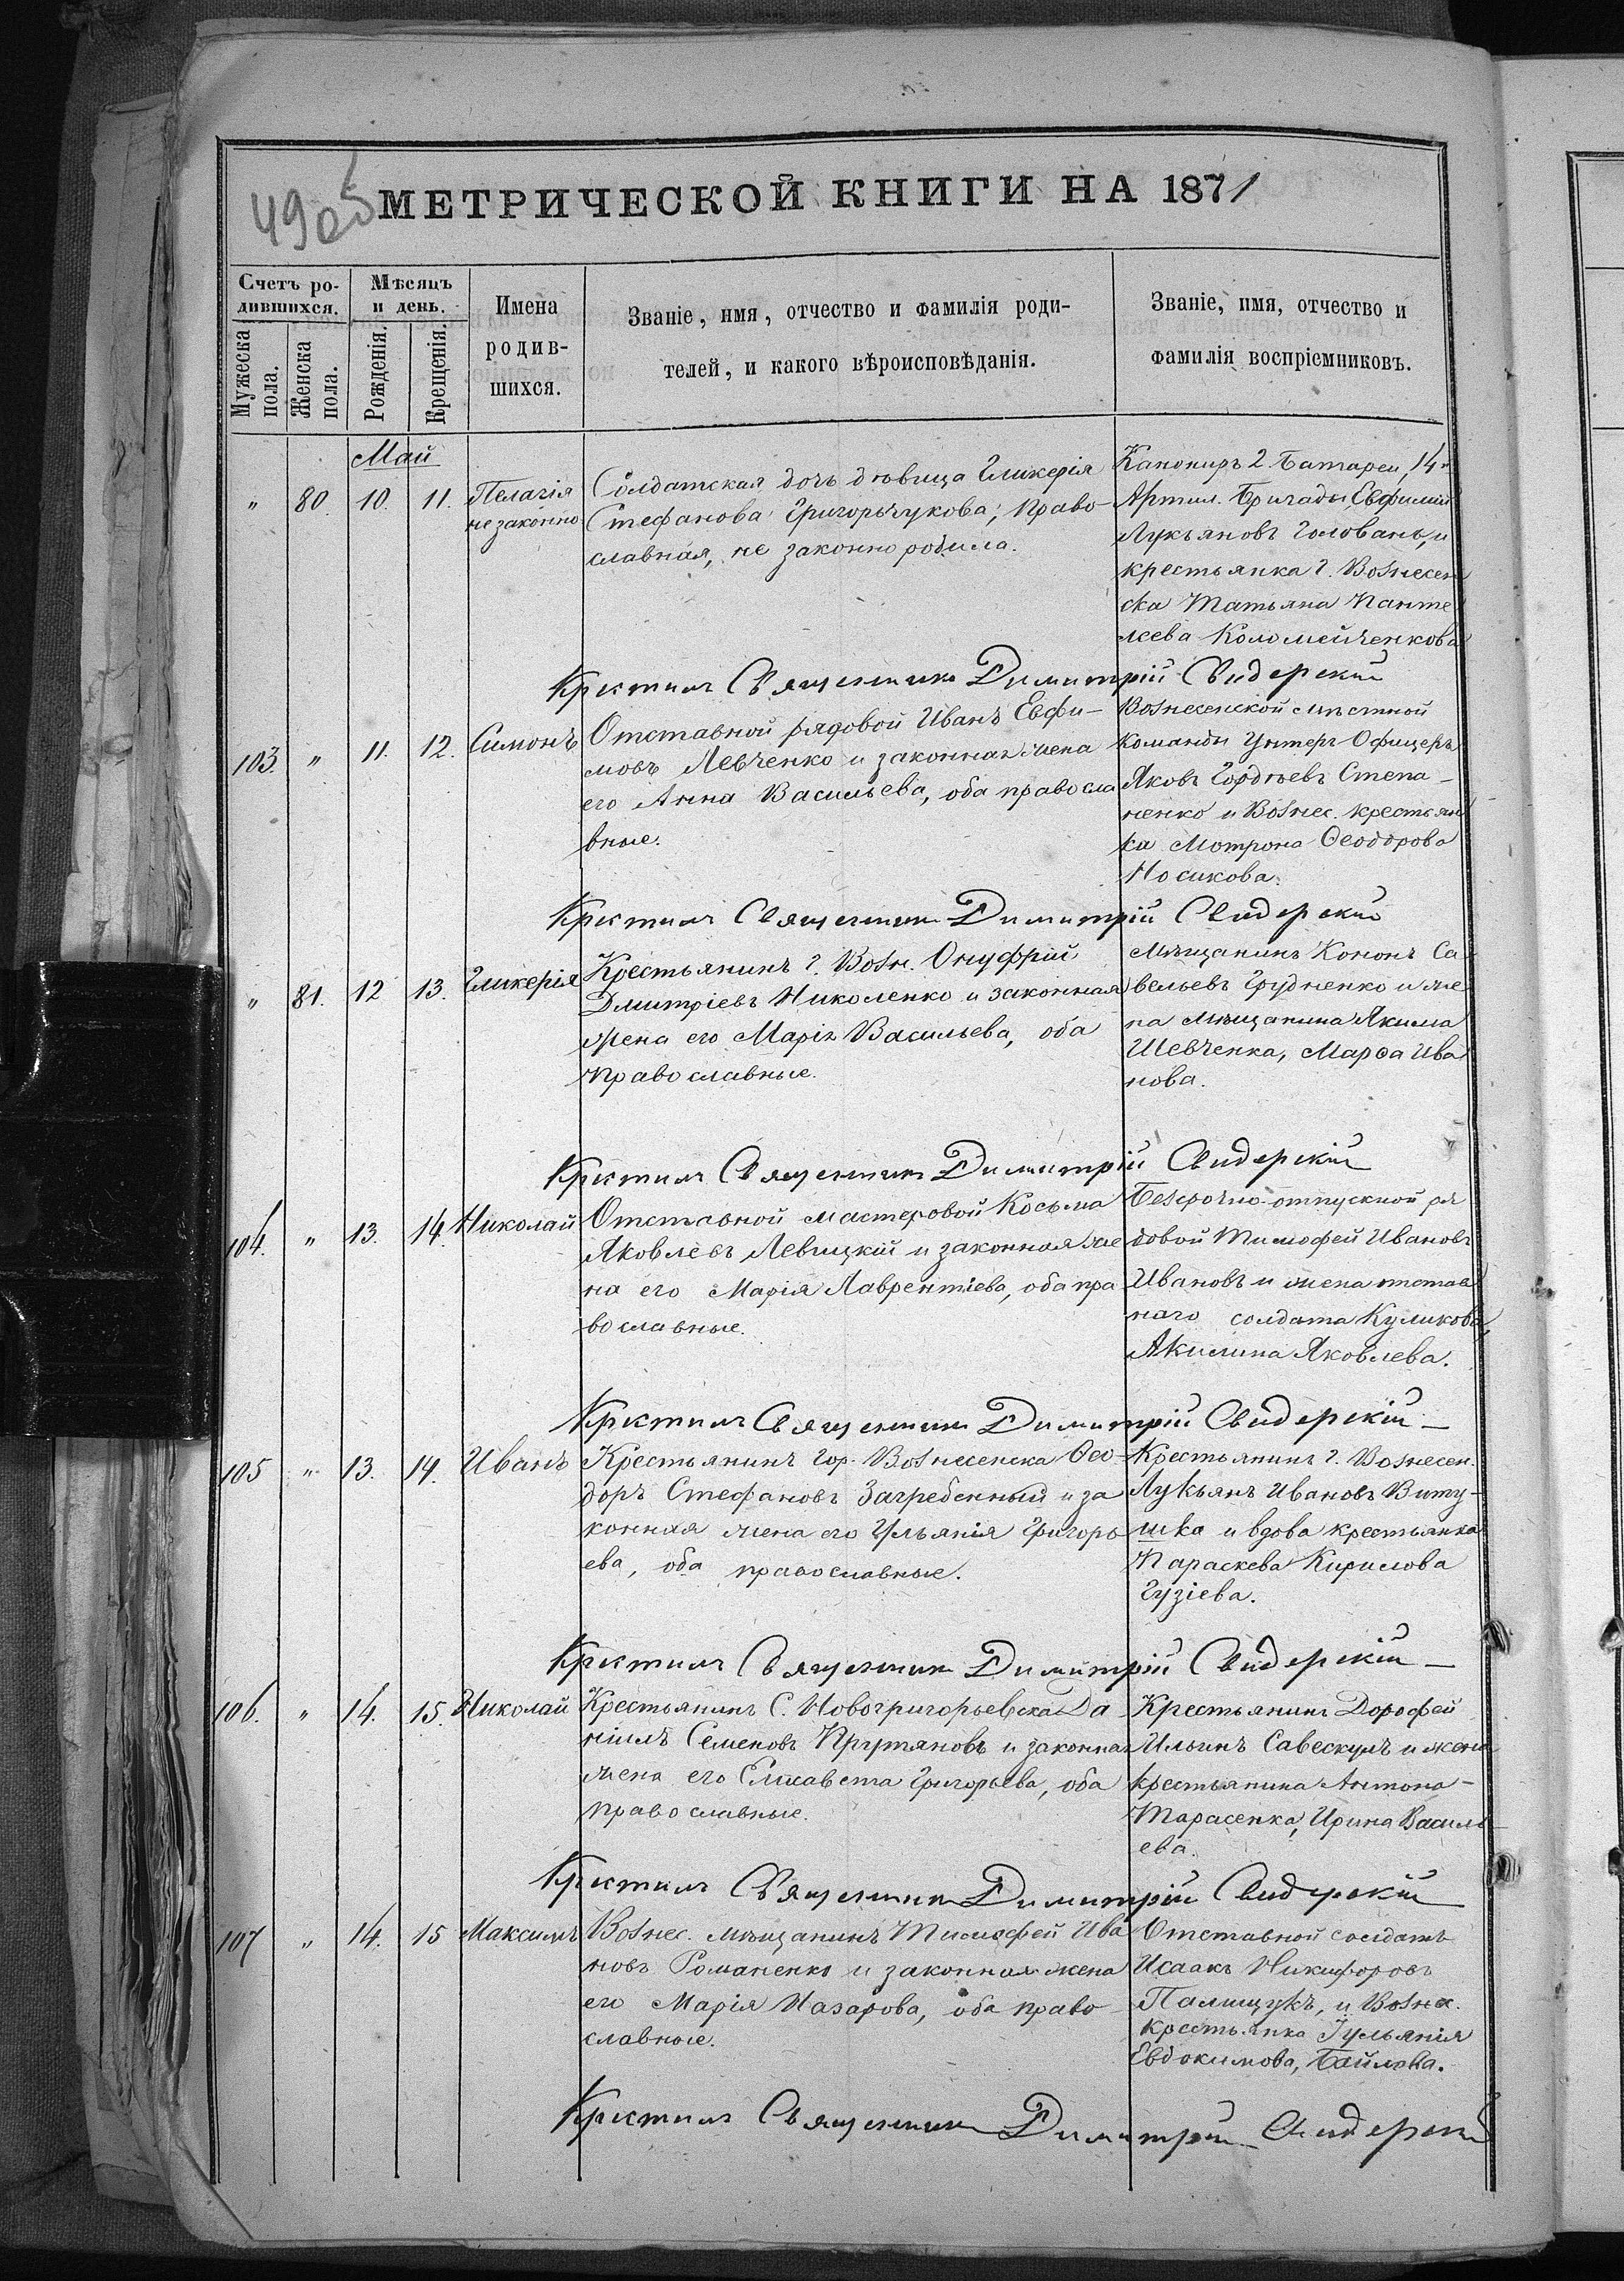 49об
МЕТРИЧЕСКОЙ КНИГИ НА 1871
Счетъ ро-
дившихся.
Мѣсяцъ
и день.
Мужеска
пола.
Женска
пола.
Рожденія.
Крещенія.
Имена
родив-
шихся.
Званіе, имя, отчество и фамилія роди-
телей, и какого вѣроисповѣданія.
Званіе, имя, отчество и
фамилія воспріемниковъ.
Май
" 80. 10. 11. Пелагія
незаконно
Солдатская дочь дѣвица Гликерія
Стефанова Григорчукова; право-
славная, не законно родила.
Канониръ 2 батареи, 14й
Артил. Бригады, Евфимій
Лукьяновъ Головань, и
крестьянка г. Вознесен
ска Татьяна Панте
леева Коломейченкова
Крестилъ Священникъ Димитрій Свидерскій
103. " 11. 12. Симонъ
Отставной рядовой Иванъ Евфи-
мовъ Левченко и законная жена
его Анна Васильева, оба правосла
вные.
Вознесенской мѣстной
команды Унтеръ-Офицеръ
Яковъ Гордѣевъ Степа-
ненко и Вознес. крестьян
ка Мотрона Ѳеодорова
Носикова.
Крестилъ Священникъ Димитрій Свидерскій
" 81. 12 13. Гликерія
Крестьянинъ г. Возн. Онуфрій
Дмитріевъ Николенко и законная
жена его Марія Васильева, оба
православные.
Мѣщанинъ Кононъ Са
вельевъ Грудненко и же
на мѣщанина Якима
Шевченка, Марѳа Ива
нова.
Крестилъ Священникъ Димитрій Свидерскій
104. " 13. 14. Николай
Отставной мастеровой Косьма
Яковлевъ Левицкій и законная же
на его Марія Лаврентіева, оба пра
вославные.
Безсрочно-отпускной ря
довой Тимофей Ивановъ
Ивановъ и жена отстав
наго солдата Куликова,
Акилина Яковлева.
Крестилъ Священникъ Димитрій Свидерскій
105 " 13. 14. Иванъ
Крестьянинъ гор. Вознесенска Ѳео-
доръ Стефановъ Загребенный и за
конная жена его Ульянія Григорь
ева, оба православные.
Крестьянинъ г. Вознесен.
Лукьянъ Ивановъ Виту-
шка и вдова крестьянка
Параскева Кирилова
Гузіева.
Крестилъ Священникъ Димитрій Свидерскій
106. " 14. 15. Николай
Крестьянинъ С. Новогригорьевска Да
ніилъ Семеновъ Прутяновъ и законная
жена его Елисавета Григорьева, оба
православные.
Крестьянинъ Дорофей
Ильинъ Савескулъ и жена
крестьянина Антона
Тарасенка, Ирина Василь
ева.
Крестилъ Священникъ Димитрій Свидерскій
107 " 14. 15 Максимъ
Вознес. мѣщанинъ Тимофей Ива
новъ Романенко и законная жена
его Марія Назарова, оба право-
славные.
Отставной солдатъ
Исаакъ Никифоровъ
Палищукъ, и Вознес.
крестьянка Іульянія
Евдокимова, Байлова.
Крестилъ Священникъ Димитрій Свидерскій